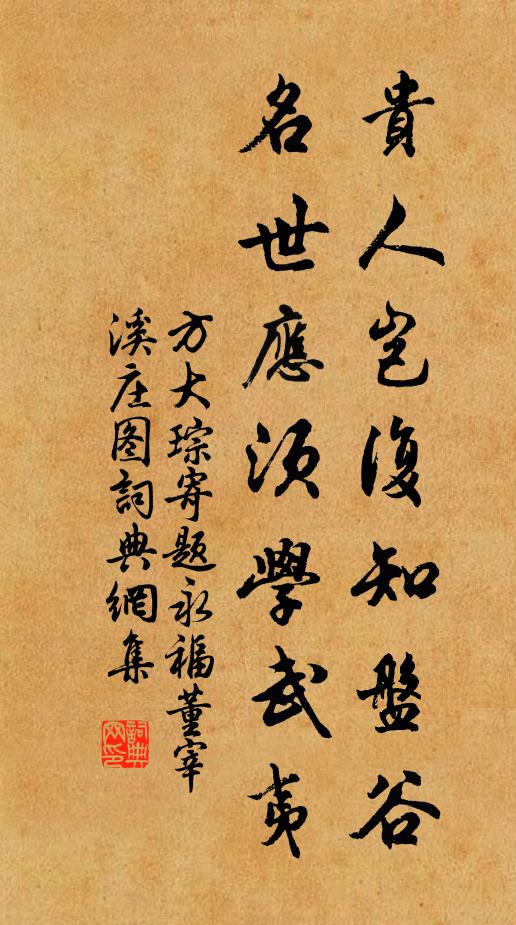 貴人岂復知盤谷
名世應須學武夷
方大琮寄題永福董宰
溪庄图詞典網集
詞典网印